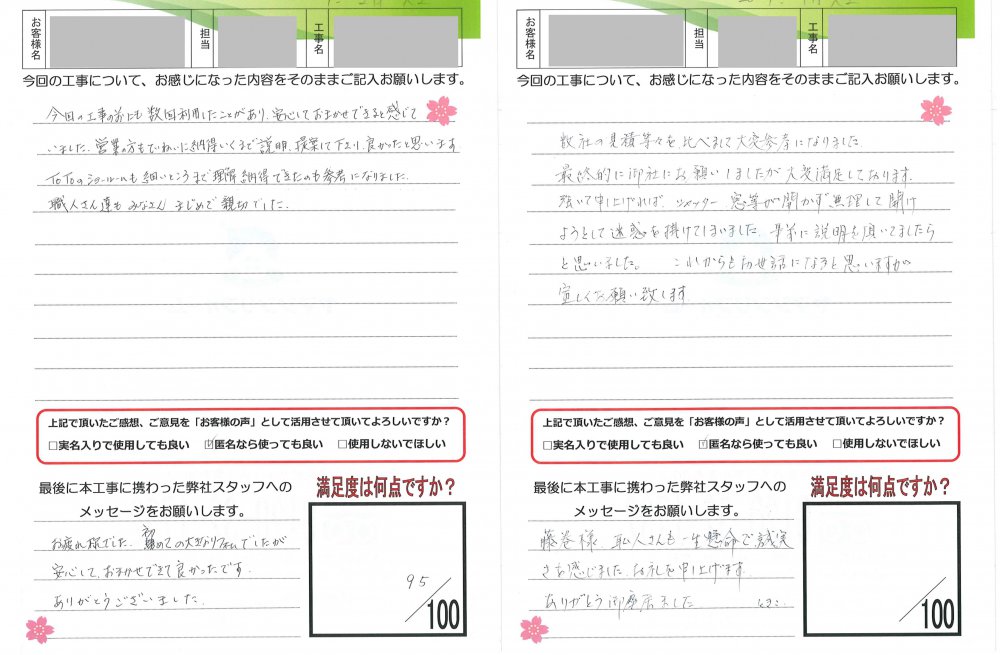 お客様名
担当
工事名
今回の工事について、お感じになった内容をそのままご記入お願いします。
今回の工事の前にも数回利用したことがあり、安心しておまかせできると感じて
いました。営業の方もていねいに納得いくまで説明、提案して下さり、良かったと思います
TOTOのショールームも細いところまで理解納得できたのも参考になりました。
職人さん達もみなさんまじめで親切でした。
上記で頂いたご感想、ご意見を「お客様の声」として活用させて頂いてよろしいですか？
□実名入りで使用しても良い ☑匿名なら使っても良い □使用しないでほしい
最後に本工事に携わった弊社スタッフへの
メッセージをお願いします。
お疲れ様でした。初めての大きなリフォームでしたが
安心して、おまかせできて良かったです。
ありがとうございました。
満足度は何点ですか？
95/100
お客様名
担当
工事名
今回の工事について、お感じになった内容をそのままご記入お願いします。
数社の見積等々を比べまして大変参考になりました
最終的に御社にお願いしましたが大変満足しております。
強いて申上げれば、シャッター 窓等が開かず無理して開け
ようとして迷惑を掛けてしまいました、事前に説明を頂いてましたら
と思いました。 これからもお世話になると思いますが
宜しくお願い致します
上記で頂いたご感想、ご意見を「お客様の声」として活用させて頂いてよろしいですか？
□実名入りで使用しても良い ☑匿名なら使っても良い □使用しないでほしい
最後に本工事に携わった弊社スタッフへの
メッセージをお願いします。
藤谷様、職人さんも一生懸命で誠実
さを感じました、お礼を申上げます
ありがとう御座居ました
満足度は何点ですか？
/100